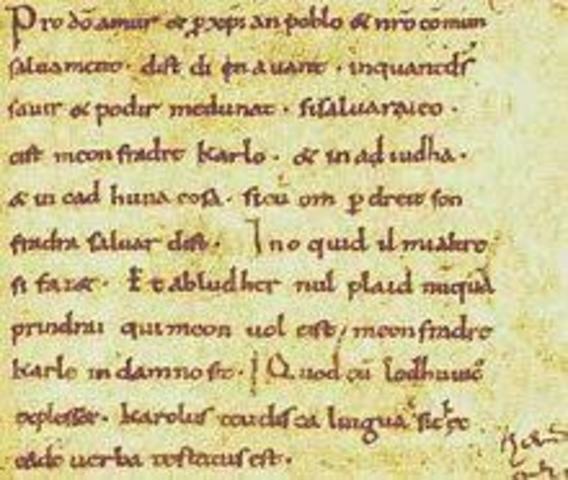 Pro dō amur & ꝑ xp̄ian poblo & nr̄o cōmun
saluament. dist di en auant. inquantdś
sauir & podir medunat. sisaluaraieo.
cist meon fradre Karlo. & in ad iudha.
& in cad huna cosa. sicū om ꝑ dreit son
fradra saluar dift. Ino quid il mialtre
si faz&. Et abludher nul plaid nūquā
prindrai qui meon uol cist / meon fradre
Karle in damno sit. | Quod cū lodhuuic̄
explesset. Karolus teudisca lingua sic ec
eade uerba testatus est.